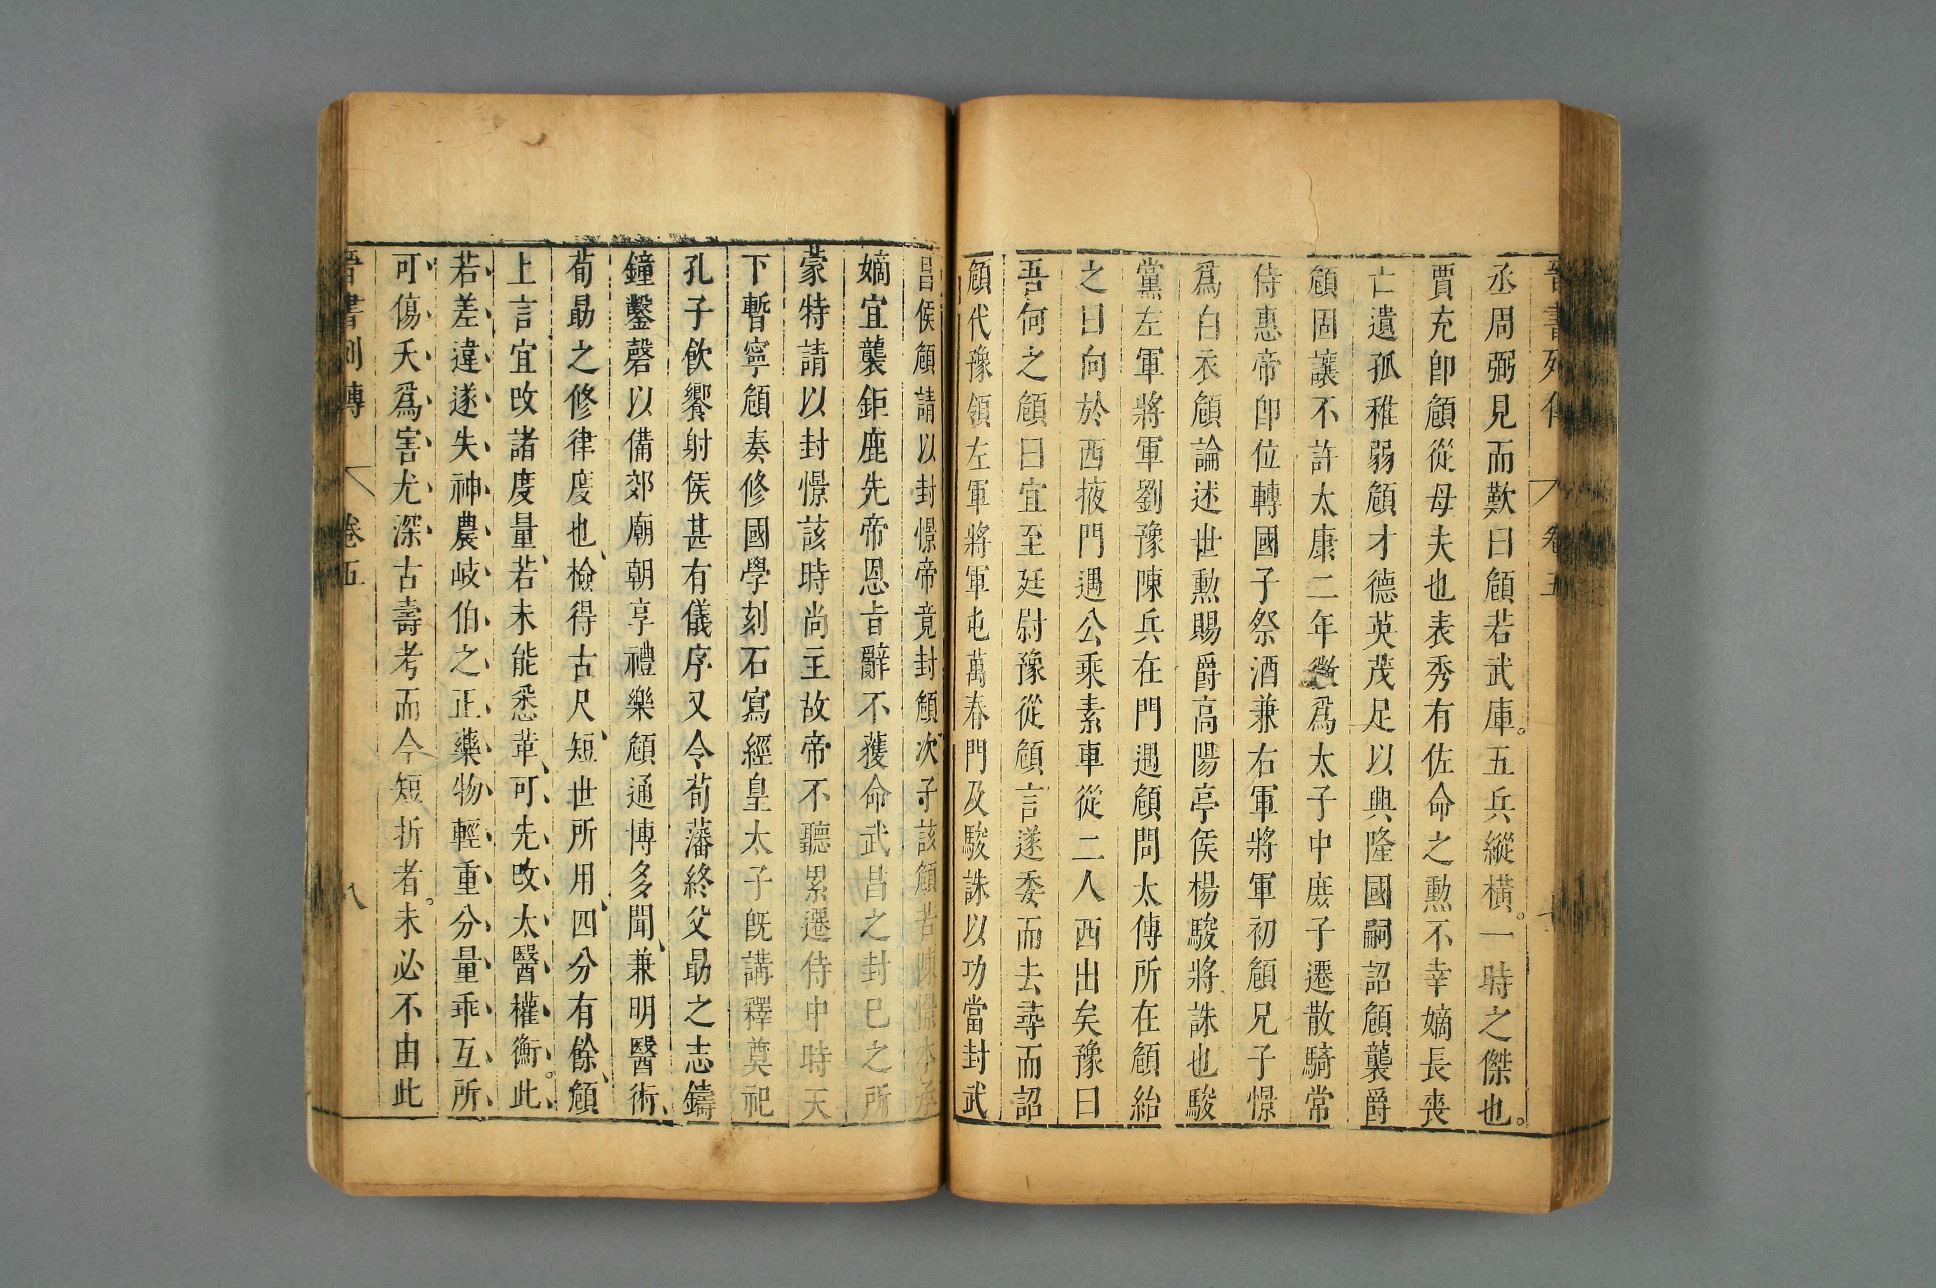 晉書列傳 卷五
丞周弼見而歎曰頠若武庫。五兵縱橫。一時之傑也。
賈充卽頠從母夫也表秀有佐命之勲不幸嫡長喪
亡遺孤稚弱頠才德英茂足以興隆國嗣詔頠襲爵
頠固讓不許太康二年徵爲太子中庶子遷散騎常
侍惠帝卽位轉國子祭酒兼右軍將軍初頠兄子憬
爲白衣頠論述世勲賜爵高陽亭侯楊駿將誅也駿
黨左軍將軍劉豫陳兵在門遇頠問太傅所在頠紿
之曰向於西掖門遇公乘素車從二人西出矣豫曰
吾何之頠曰宜至廷尉豫從頠言遂委而去尋而詔
頠代豫領左軍將軍屯萬春門及駿誅以功當封武
昌侯頠請以封憬帝竟封頠次子該頠苦陳憬本承
嫡宜襲鉅鹿先帝恩旨辭不獲命武昌之封已之所
蒙特請以封憬該時尚主故帝不聽累遷侍中時天
下暫寧頠奏修國學刻石寫經皇太子旣講釋奠祀
孔子飮饗射侯甚有儀序又令荀藩終父勗之志鑄
鐘鑿磬以備郊廟朝享禮樂頠通博多聞、兼明醫術、
荀勗之修律度也、檢得古尺、短世所用、四分有餘、頠
上言宜改諸度量、若未能悉革、可先改太醫權衡。此
若差違遂失神農岐伯之正藥物輕重分量乖互所
可傷夭爲害尤深古壽考而今短折者。未必不由此
晉書列傳 卷五 八